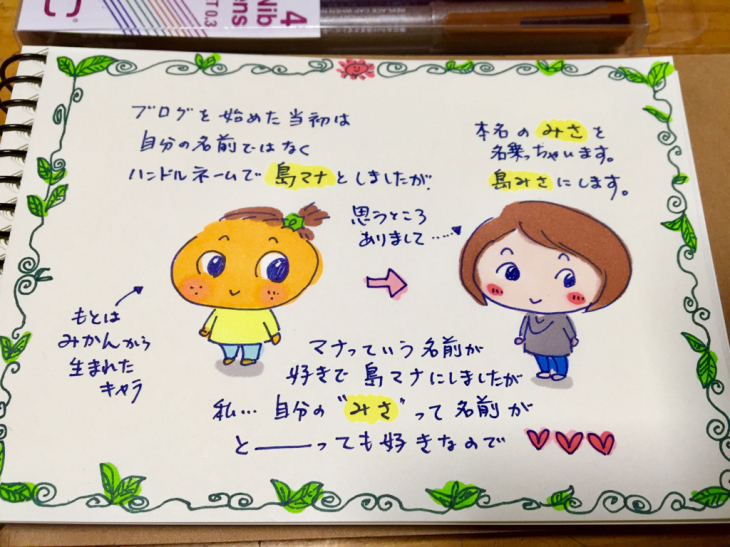 4
Nib
ens
T 0.3
ブログを始めた当初は
自分の名前ではなく
ハンドルネームで島マナとしましたが、
本名のみさを
名乗っちゃいます。
島みさにします。
思うところ
ありまして……
もとは
みかんから
生まれた
キャラ
マナっていう名前が
好きで島マナにしましたが
私…自分の"みさ"って名前が
と――っても好きなので